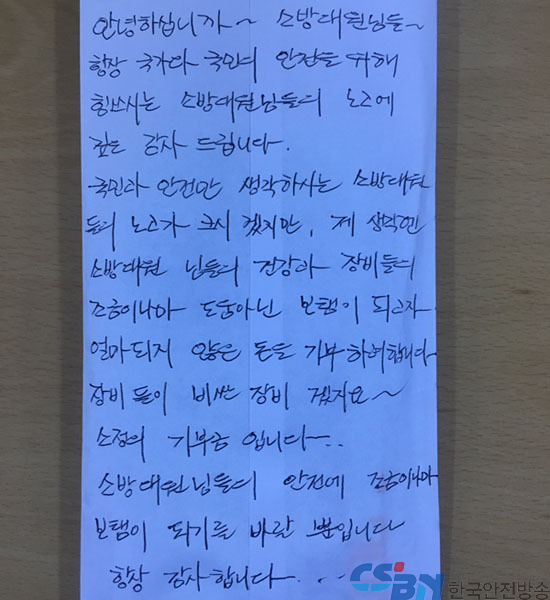 안녕하십니까~ 소방대원님들~
항상 국가와 국민의 안전을 위해
힘쓰시는 소방대원님들의 노고에
깊은 감사 드립니다.
국민과 안전만 생각하시는 소방대원
들의 노고가 크시 겠지만, 제 생각엔
소방대원 님들의 건강과 장비들의
조금이나마 도움아닌 보탬이 되고자
얼마되지 않은 돈을 기부하려합니다
장비 들이 비싼 장비 겠지요~
소정의 기부금 입니다~..
소방대원님들의 안전에 조금이나마
보탬이 되기를 바랄 뿐입니다
항상 감사합니다~...
CSBN 한국안전방송